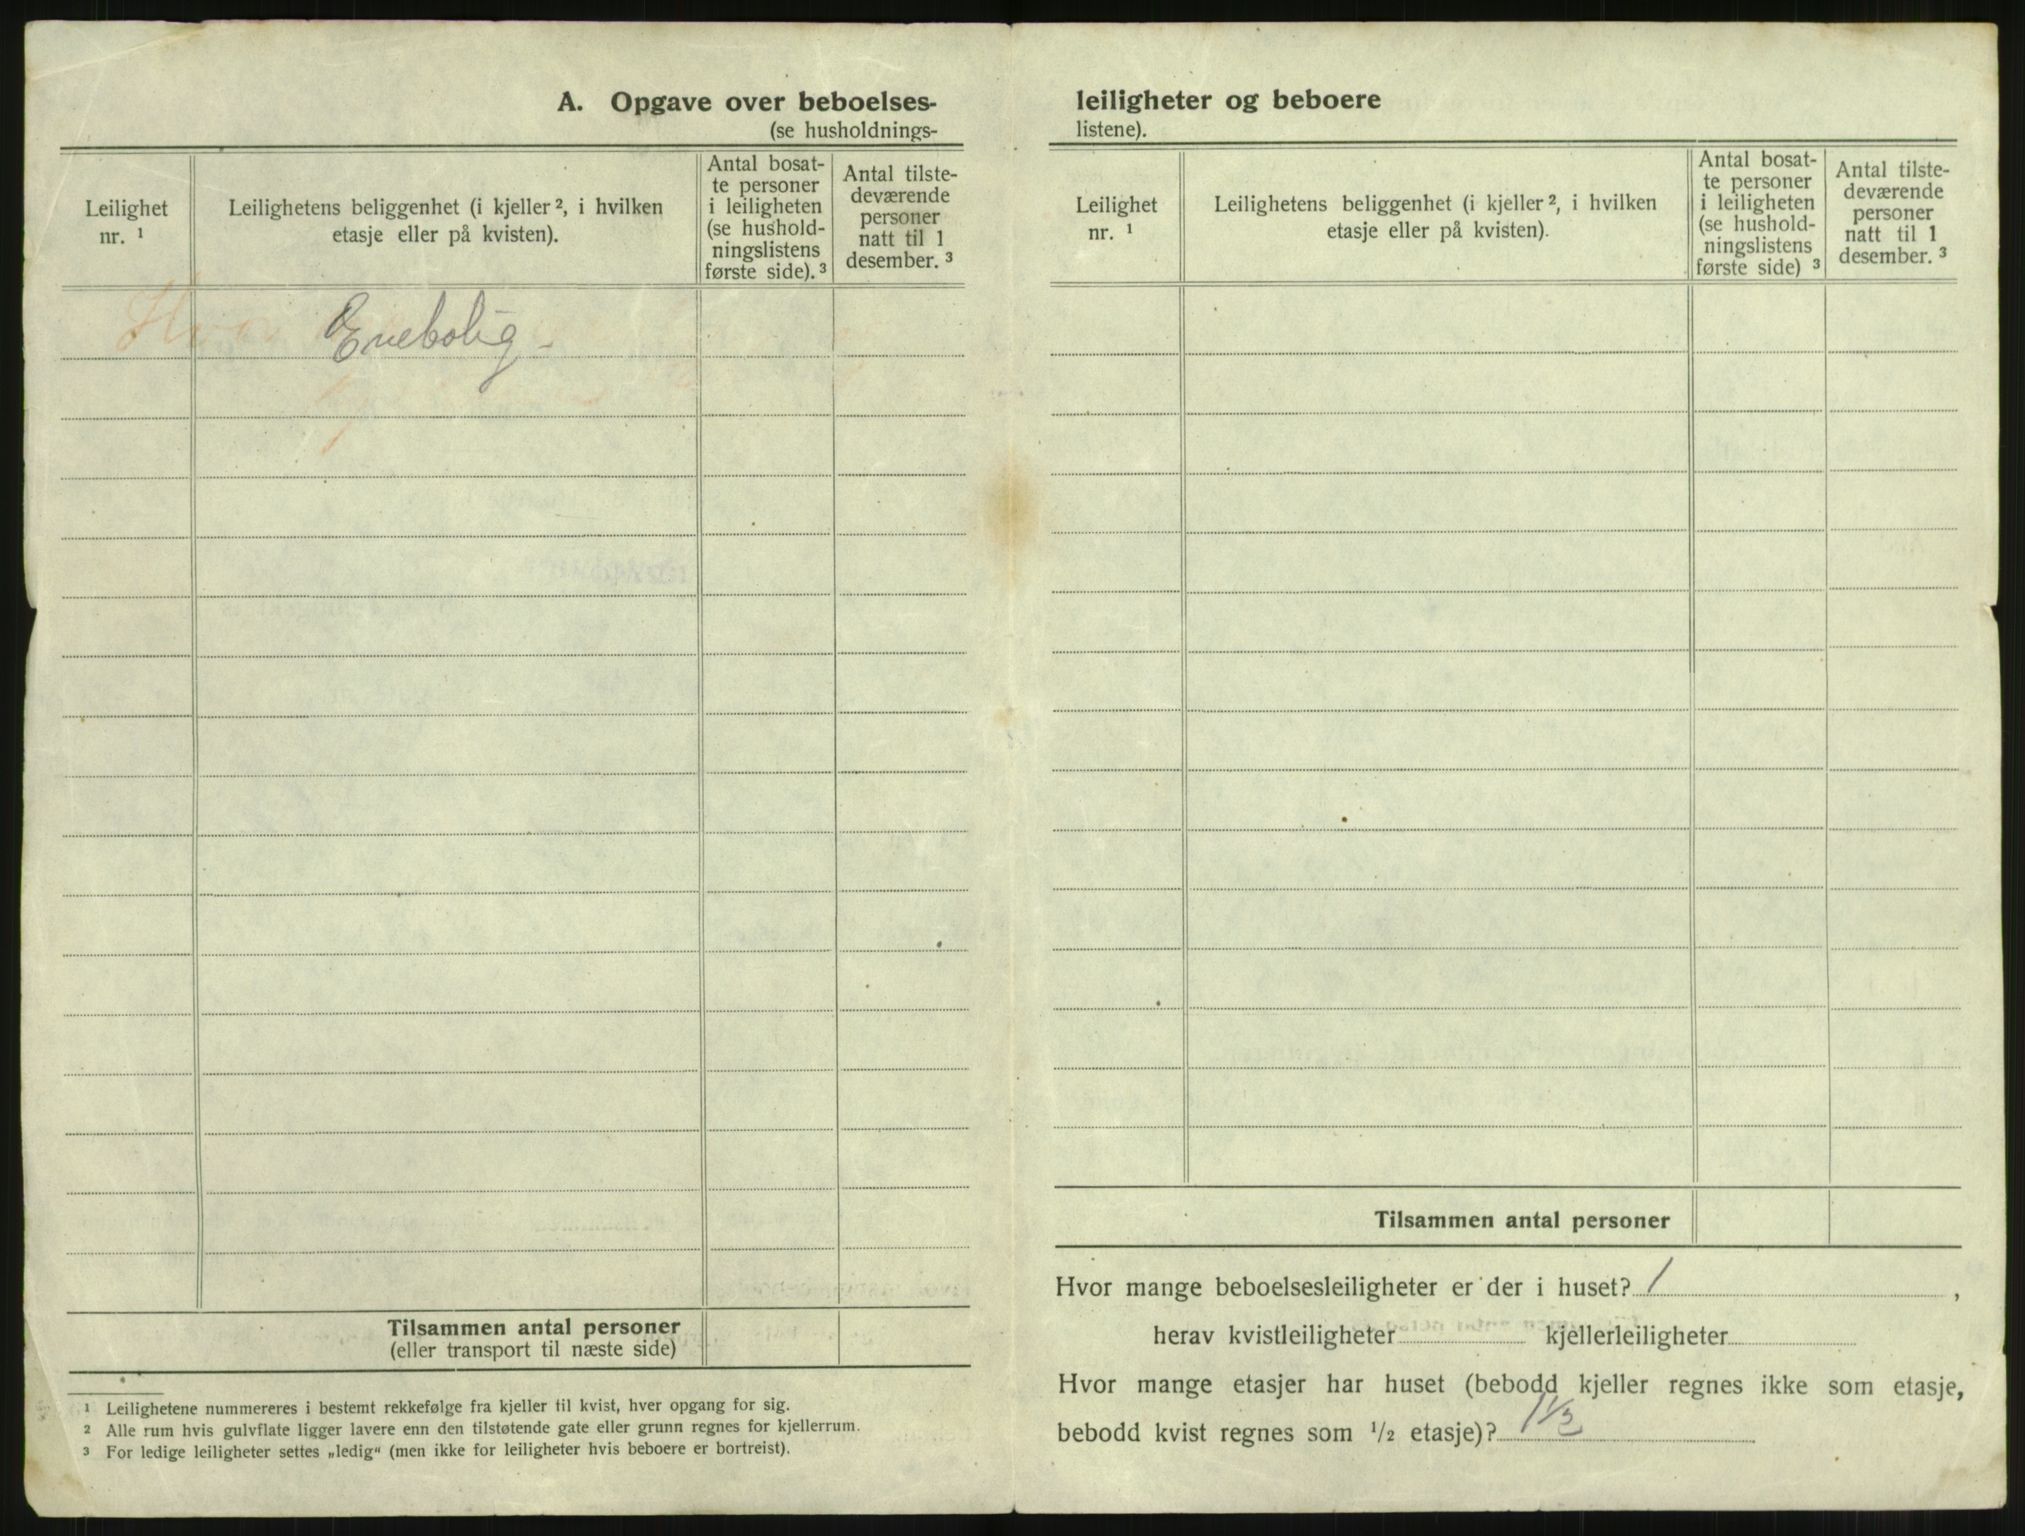 A. Opgave over beboelses-
(se husholdnings-
Leilighet
nr. ¹
Leilighetens beliggenhet (i kjeller ², i hvilken
etasje eller på kvisten).
Antal bosat-
te personer
i leiligheten
(se hushold-
ningslistens
første side). ³
Antal tilste-
deværende
personer
natt til 1
desember. ³
Hvor
Enebolig
Tilsammen antal personer
(eller transport til næste side)
¹ Leilighetene nummereres i bestemt rekkefølge fra kjeller til kvist, hver opgang for sig.
² Alle rum hvis gulvflate ligger lavere enn den tilstøtende gate eller grunn regnes for kjellerrum.
³ For ledige leiligheter settes „ledig“ (men ikke for leiligheter hvis beboere er bortreist).
leiligheter og beboere
listene).
Leilighet
nr. ¹
Leilighetens beliggenhet (i kjeller ², i hvilken
etasje eller på kvisten).
Antal bosat-
te personer
i leiligheten
(se hushold-
ningslistens
første side) ³
Antal tilste-
deværende
personer
natt til 1
desember. ³
Tilsammen antal personer
Hvor mange beboelsesleiligheter er der i huset? 1 ,
herav kvistleiligheter kjellerleiligheter
Hvor mange etasjer har huset (bebodd kjeller regnes ikke som etasje,
bebodd kvist regnes som ½ etasje)?